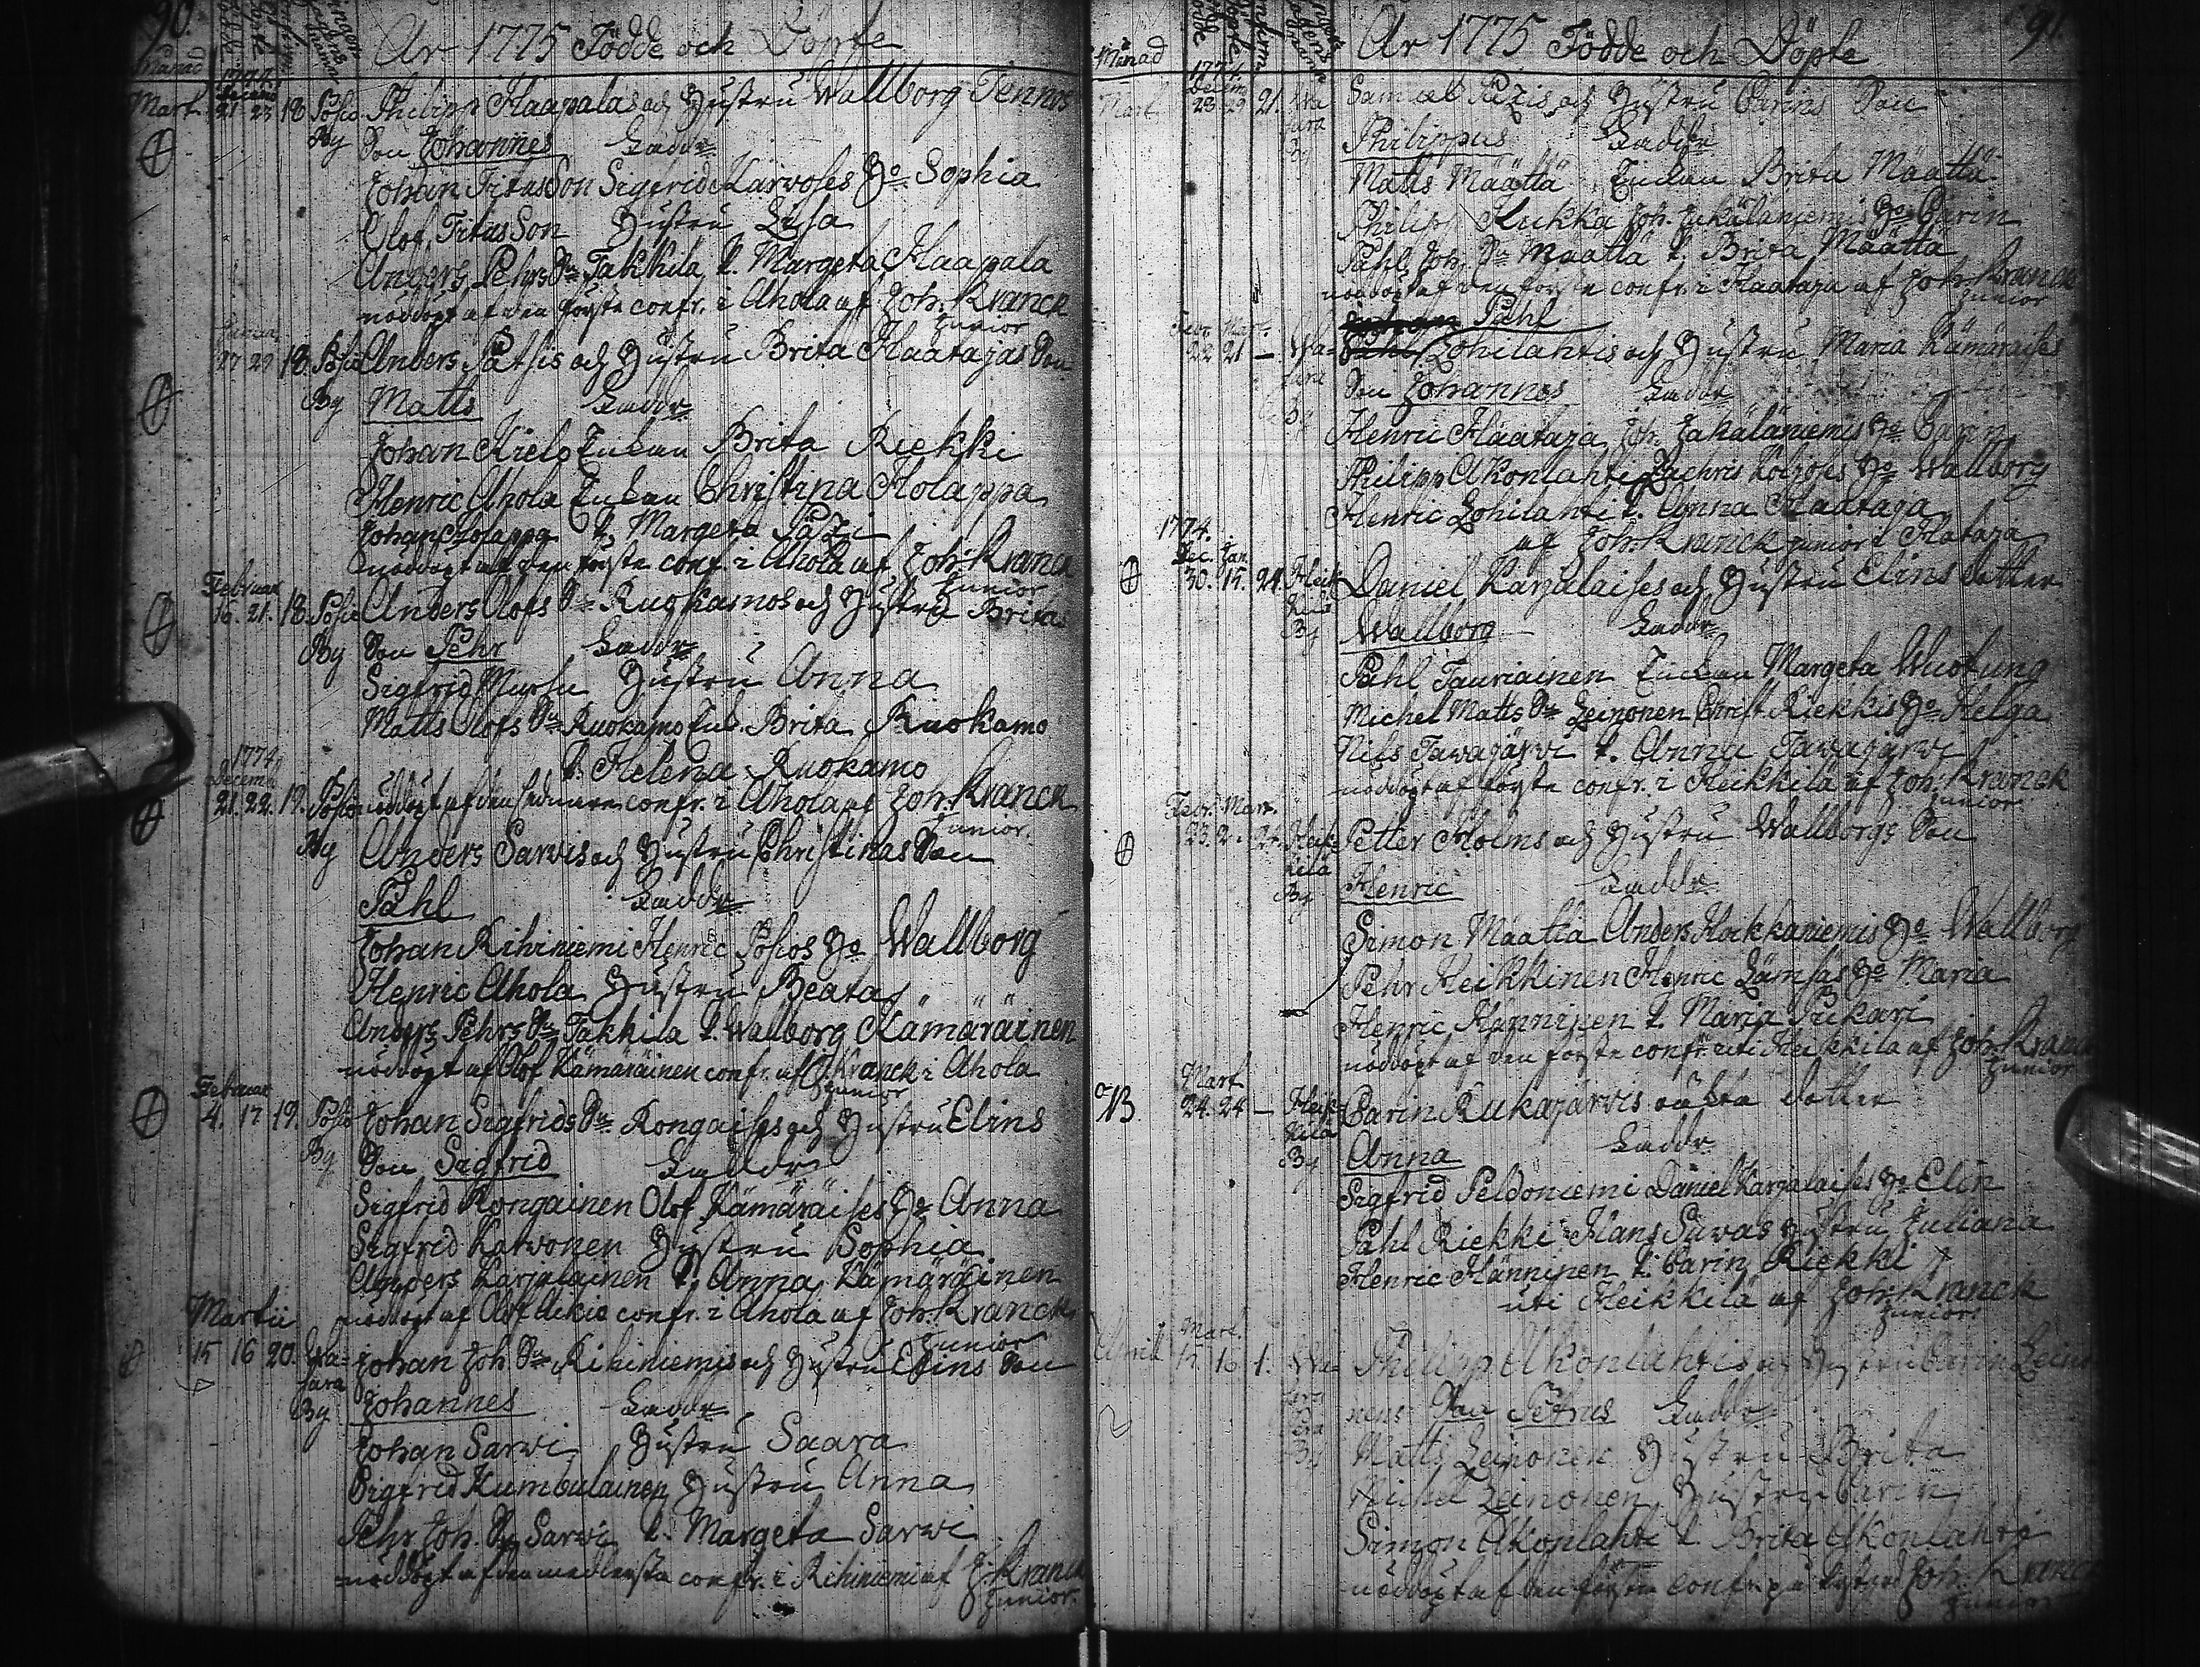 90.
År 1775 Födde och Döpte
Månad
1774
Decemb
Mart. 21. 23 18. Posio Philipp Haapalas och Hustru Wallborg Tennos
By Son Johannes Faddr
Johan Titusson Sigfrid Karvoses Ho Sophia
Olof Titusson Hustru Lisa
Anders Pehrs Sn Takkila P. Margeta Haapala
nöddöpt af den förste confr. i Ahola af Joh. Kranck
Junior
27 29 18. Posio Anders Pätsis och Hustru Brita Haatajas Son
By Matts Faddr
Johan Kielo Enkan Brita Riekki
Henric Ahola Enkan Christina Holappa
Johan Holappa P. Margeta Pätzi
nöddöpt af den förste confr. i Ahola af Joh: Kranck
Junior
Februar
16. 21. 18. Posio Anders Olofs Sn Ruokamos och Hustru Brita
By Son Pehr Faddr
Sigfrid Mursu Hustru Anna
Matts Olofs Sn Ruokamo Enk. Brita Ruokamo
P. Helena Ruokamo
1774
Decemb
21. 22. 19. Posio nöddöpt af den sednare confr. i Ahola af Joh: Kranck
Junior.
By Anders Sarvis och Hustru Christinas Son
Påhl Faddr
Johan Rihiniemi Henric Posios Ho Wallborg
Henric Ahola Hustru Beata
Anders Pehrs Sn Takkila P. Wallborg Kämäräinen
nöddöpt af Olof Kämäräinen confr. af J Kranck i Ahola
Junior
Februar
4. 17 19. Posio Johan Sigfrids Sn Rongaises och Hustru Elins
By Son Sigfrid Faddr
Sigfrid Rongainen Olof Kämäräises Ho Anna
Sigfrid Karvonen Hustru Sophia
Anders Karjalainen P. Anna Kämäräinen
nöddöpt af Olof Ackio confr. i Ahola af Joh: Kranck
Junior
Martii
15 16 20. Wa= Johan Joh. Sn Rihiniemis och Hustru Elins Son
sara
By Johannes Faddr
Johan Sarvi Hustru Saara
Sigfrid Kumbulainen Hustru Anna
Pehr Joh. Sn Sarvi P. Margeta Sarvi
nöddöpt af den medlersta confr. i Rihiniemi af J. Kranck
Junior.
91.
År 1775 Födde och Döpte
Månad
1774.
Decemb
Mart. 28 29 21. Wa Samuel Pätzis och Hustru Carins Son
sara
By Philippus Faddr
Matts Määttä Enkan Brita Määttä
Philip Kukka Joh. Jakälaniemis Ho Carin
Påhl Joh. Sn Määttä P. Brita Määttä
nöddöpt af den förste confr. i Haataja af Joh: Kranck
Junior
Påhl
Febr. Mart.
22 21 — Wa= Lohilahtis och Hustru Maria Kämäräises
sara
By Son Johannes Faddr
Henric Haataja Joh. Jakälaniemis Ho Carin
Philipp Akonlahti Zachris Koljoses Ho Wallborg
Henric Lohilahti P. Anna Haataja
af Joh: Kranck junior i Hataja
1774.
Dec. Jan.
30. 15. 24. Heik
kilä
By Daniel Karjalaises och Hustru Elins dotter
Wallborg Faddr
Påhl Tauriainen Enkan Margeta Wuotung
Michel Matts Sn Leinonen Christ. Riekkis Ho Helga
Nils Tavajärvi P. Anna Tavajärvi
nöddöpt af förste confr. i Heikkilä af Joh: Kranck
Junior
Febr. Mart.
23. 2. 24. Heik=
kilä
By Petter Holms och Hustru Wallborgs Son
Henric Faddr
Simon Määttä Anders Kockkaniemis Ho Wallborg
Pehr Heikkinen Henric Lämsäs Ho Maria
Henric Hänninen P. Maria Pickari
nöddöpt af den förste confr. uti Heikkilä af Joh: Kranck
Junior
Mart.
NB. 24. 24 — Heik=
kilä
By Carin Kukajärvis oäkta dotter
Anna Faddr
Sigfrid Peldoniemi Daniel Karjalaises Ho Elin
Påhl Riekki Hans Suvas Hustru Juliana
Henric Hänninen P. Carin Riekki
uti Heikkilä af Joh: Kranck
Junior.
Mart.
April 15 16 1. Wa= Philipp Akonlahtis och Hustru Carin Leino
nens Son Petrus Faddr
By Matts Leinonen Hustru Brita
Michel Leinonen Hustru Carin
Simon Akonlahti P. Brita Akonlahti
nöddöpt af den förste confr. Joh. Kranck
Junior